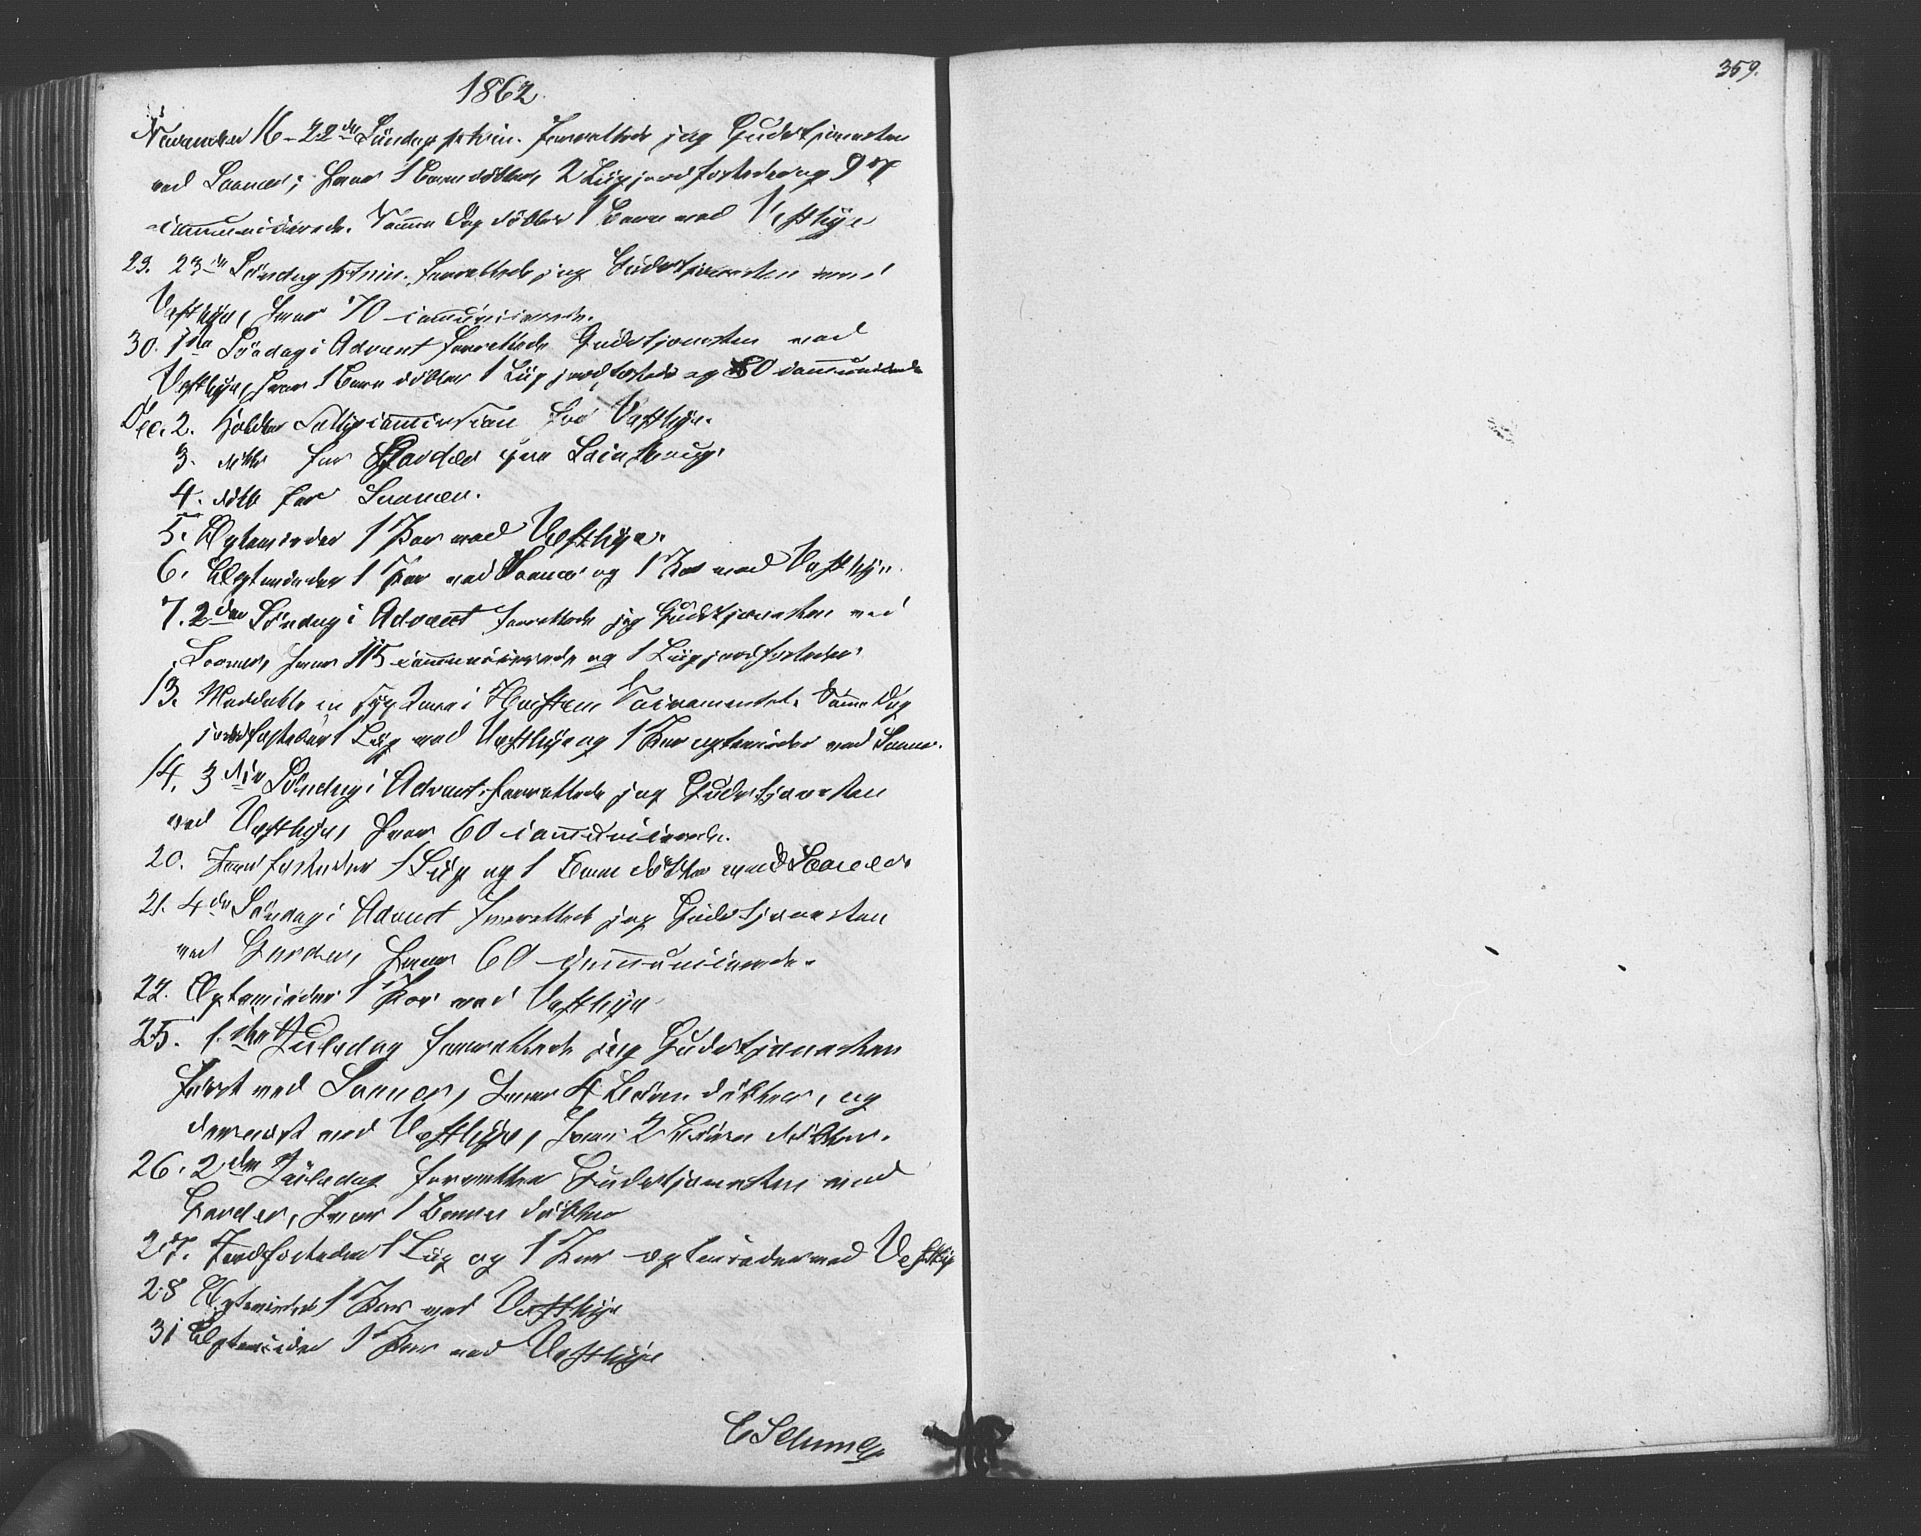 359.
1862.
November 16 - 22de Søndag p. trin. forrettede jeg Gudstjenesten
ved Sooner; hvor 1 Barn døbtes, 2 Liig jordfæstedes og 97
communicerede. Samme Dag døbtes 1 Barn ved Vestbye
23. 23de Søndag p. trin. forrettede jeg Gudstjenesten ved
Vestbye, hvor 70 communicerede.
30. 1ste Søndag i Advent forrettede Gudstjenesten ved
Vestbye, hvor 1 Barn døbtes 1 Liig jordfæstedes og 80 communicerede
Dec. 2. Holdtes for Vestbye.
3. ditto for Garder
4. ditto for Sooner.
5. Ægtevieder 1 Par ved Vestbye.
6. Ægtevieder 1 Par ved Sooner og 1 Par ved Vestbye.
7. 2den Søndag i Advent forrettede jeg Gudstjenesten ved
Sooner, hvor 115 communicerede og 1 Liig jordfæstedes
13. Meddeelte en syg i Sacramentet. Samme Dag
jordfæstedes 1 Liig ved Vestbye og 1 Par ægtevieder ved Sooner.
14. 3die Søndag i Advent forrettede jeg Gudstjenesten
ved Vestbye, hvor 60 communicerede.
20. Jordfæstedes 1 Liig og 1 Barn døbtes ved Sooner
21. 4de Søndag i Advent forrettede jeg Gudstjenesten
ved Garder, hvor 60 communicerede.
22. Ægtevieder 1 Par ved Vestbye
25. 1ste Juledag forrettede jeg Gudstjenesten
først ved Sooner, hvor 4 Børn døbtes, og
dernæst ved Vestbye, hvor 2 Børn døbtes.
26. 2den Juledag forrettes Gudstjenesten ved
Garder, hvor 1 Barn døbtes
27. Jordfæstedes 1 Liig og 1 Par ægtevieder ved Vestbye
28 Ægtevieder 1 Par ved Vestbye
31 Ægtevieder 1 Par ved Vestbye